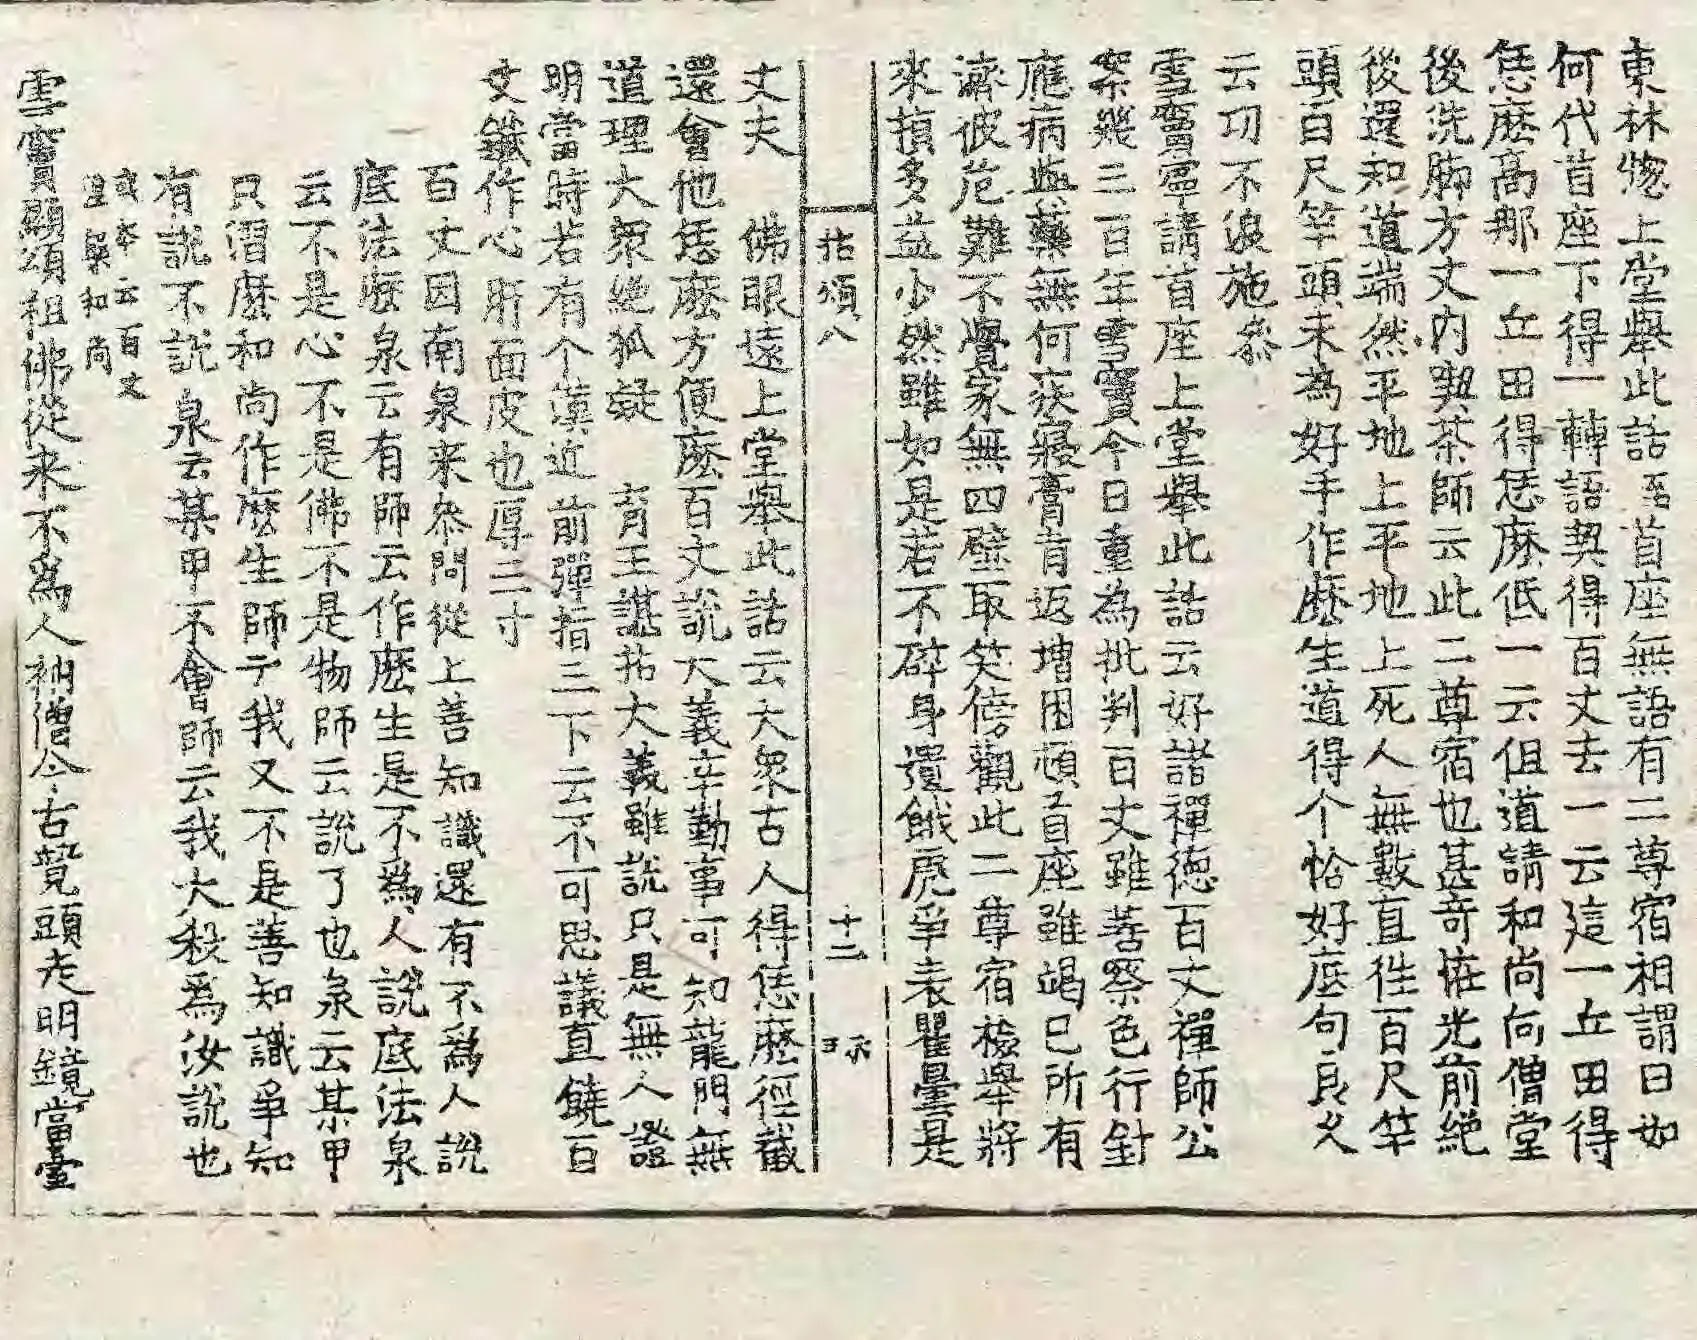 東林惣上堂舉此話至首座無語有二尊宿相謂曰如
何代首座下得一轉語契得百丈去一云這一丘田得
恁麽高那一丘田得恁麽低一云但道請和尚向僧堂
後洗脚方丈內喫茶師云此二尊宿也甚奇恠光前絶
後還知道端然平地上平地上死人無數直徃百尺竿
頭百尺竿頭未為好手作麽生道得个恰好底句良久
云刀不浪施叅
雪竇寧請首座上堂舉此話云好諸禪德百丈禪師公
案幾三百年雪竇今日重為批判百丈雖善察色行針
應病與藥無何疾寢膏肓返増困頓首座雖竭巳所有
濟彼危難不覺家無四壁取笑傍觀此二尊宿檢舉將
來損多益少然雖如是若不辟身還餓虎爭表瞿曇是
拈頌八 十二
丈夫 佛眼遠上堂舉此話云大衆古人得恁麽徑截
還會他恁麽方便麽百丈說大義辛勤事可知龍門無
道理大衆絶狐疑 育王諶拈大義雖說只是無人證
明當時若有个漢近前彈指三下云不可思議直饒百
丈鐵作心肝面皮也厚三寸
百丈因南泉来叅問從上善知識還有不爲人說
底法麽泉云有師云作麽生是不爲人說底法泉
云不是心不是佛不是物師云說了也泉云某甲
只溍麽和尚作麽生師云我又不是善知識爭知
有說不說泉云某甲不會師云我大殺爲汝說也
或本云百丈
涅槃和尚
雪竇顯頌祖佛從来不爲人衲僧今古競頭走明鏡當臺